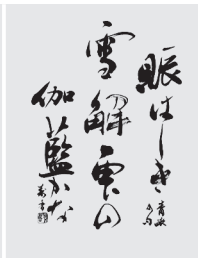 賑はしき
雪解雫の
伽藍かな
青畝